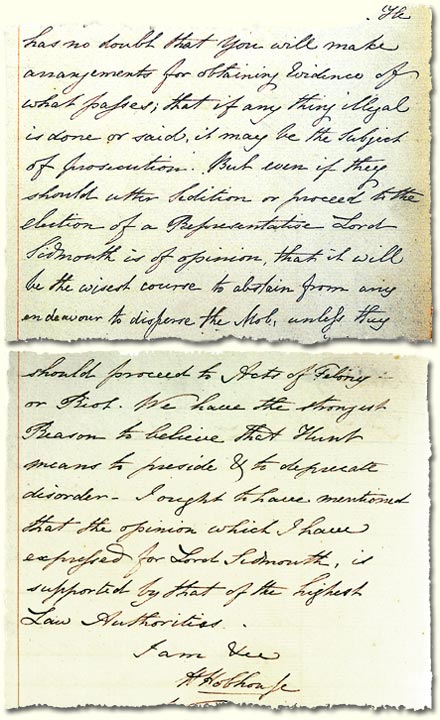 has no doubt that You will make
arrangements for obtaining Evidence of
what passes; that if any thing illegal
is done or said, it may be the subject
of prosecution. But even if they
should utter Sedition or proceed to the
election of a Representative Lord
Sidmouth is of opinion, that it will
be the wisest course to abstain from any
endeavour to disperse the Mob, unless they
should proceed to Acts of Felony
or Riot. We have the strongest
Reason to believe that Hunt
means to preside & to deprecate
disorder – I ought to have mentioned
that the opinion which I have
expressed for Lord Sidmouth, is
supported by that of the highest
Law Authorities.
I am &c
H Hobhouse